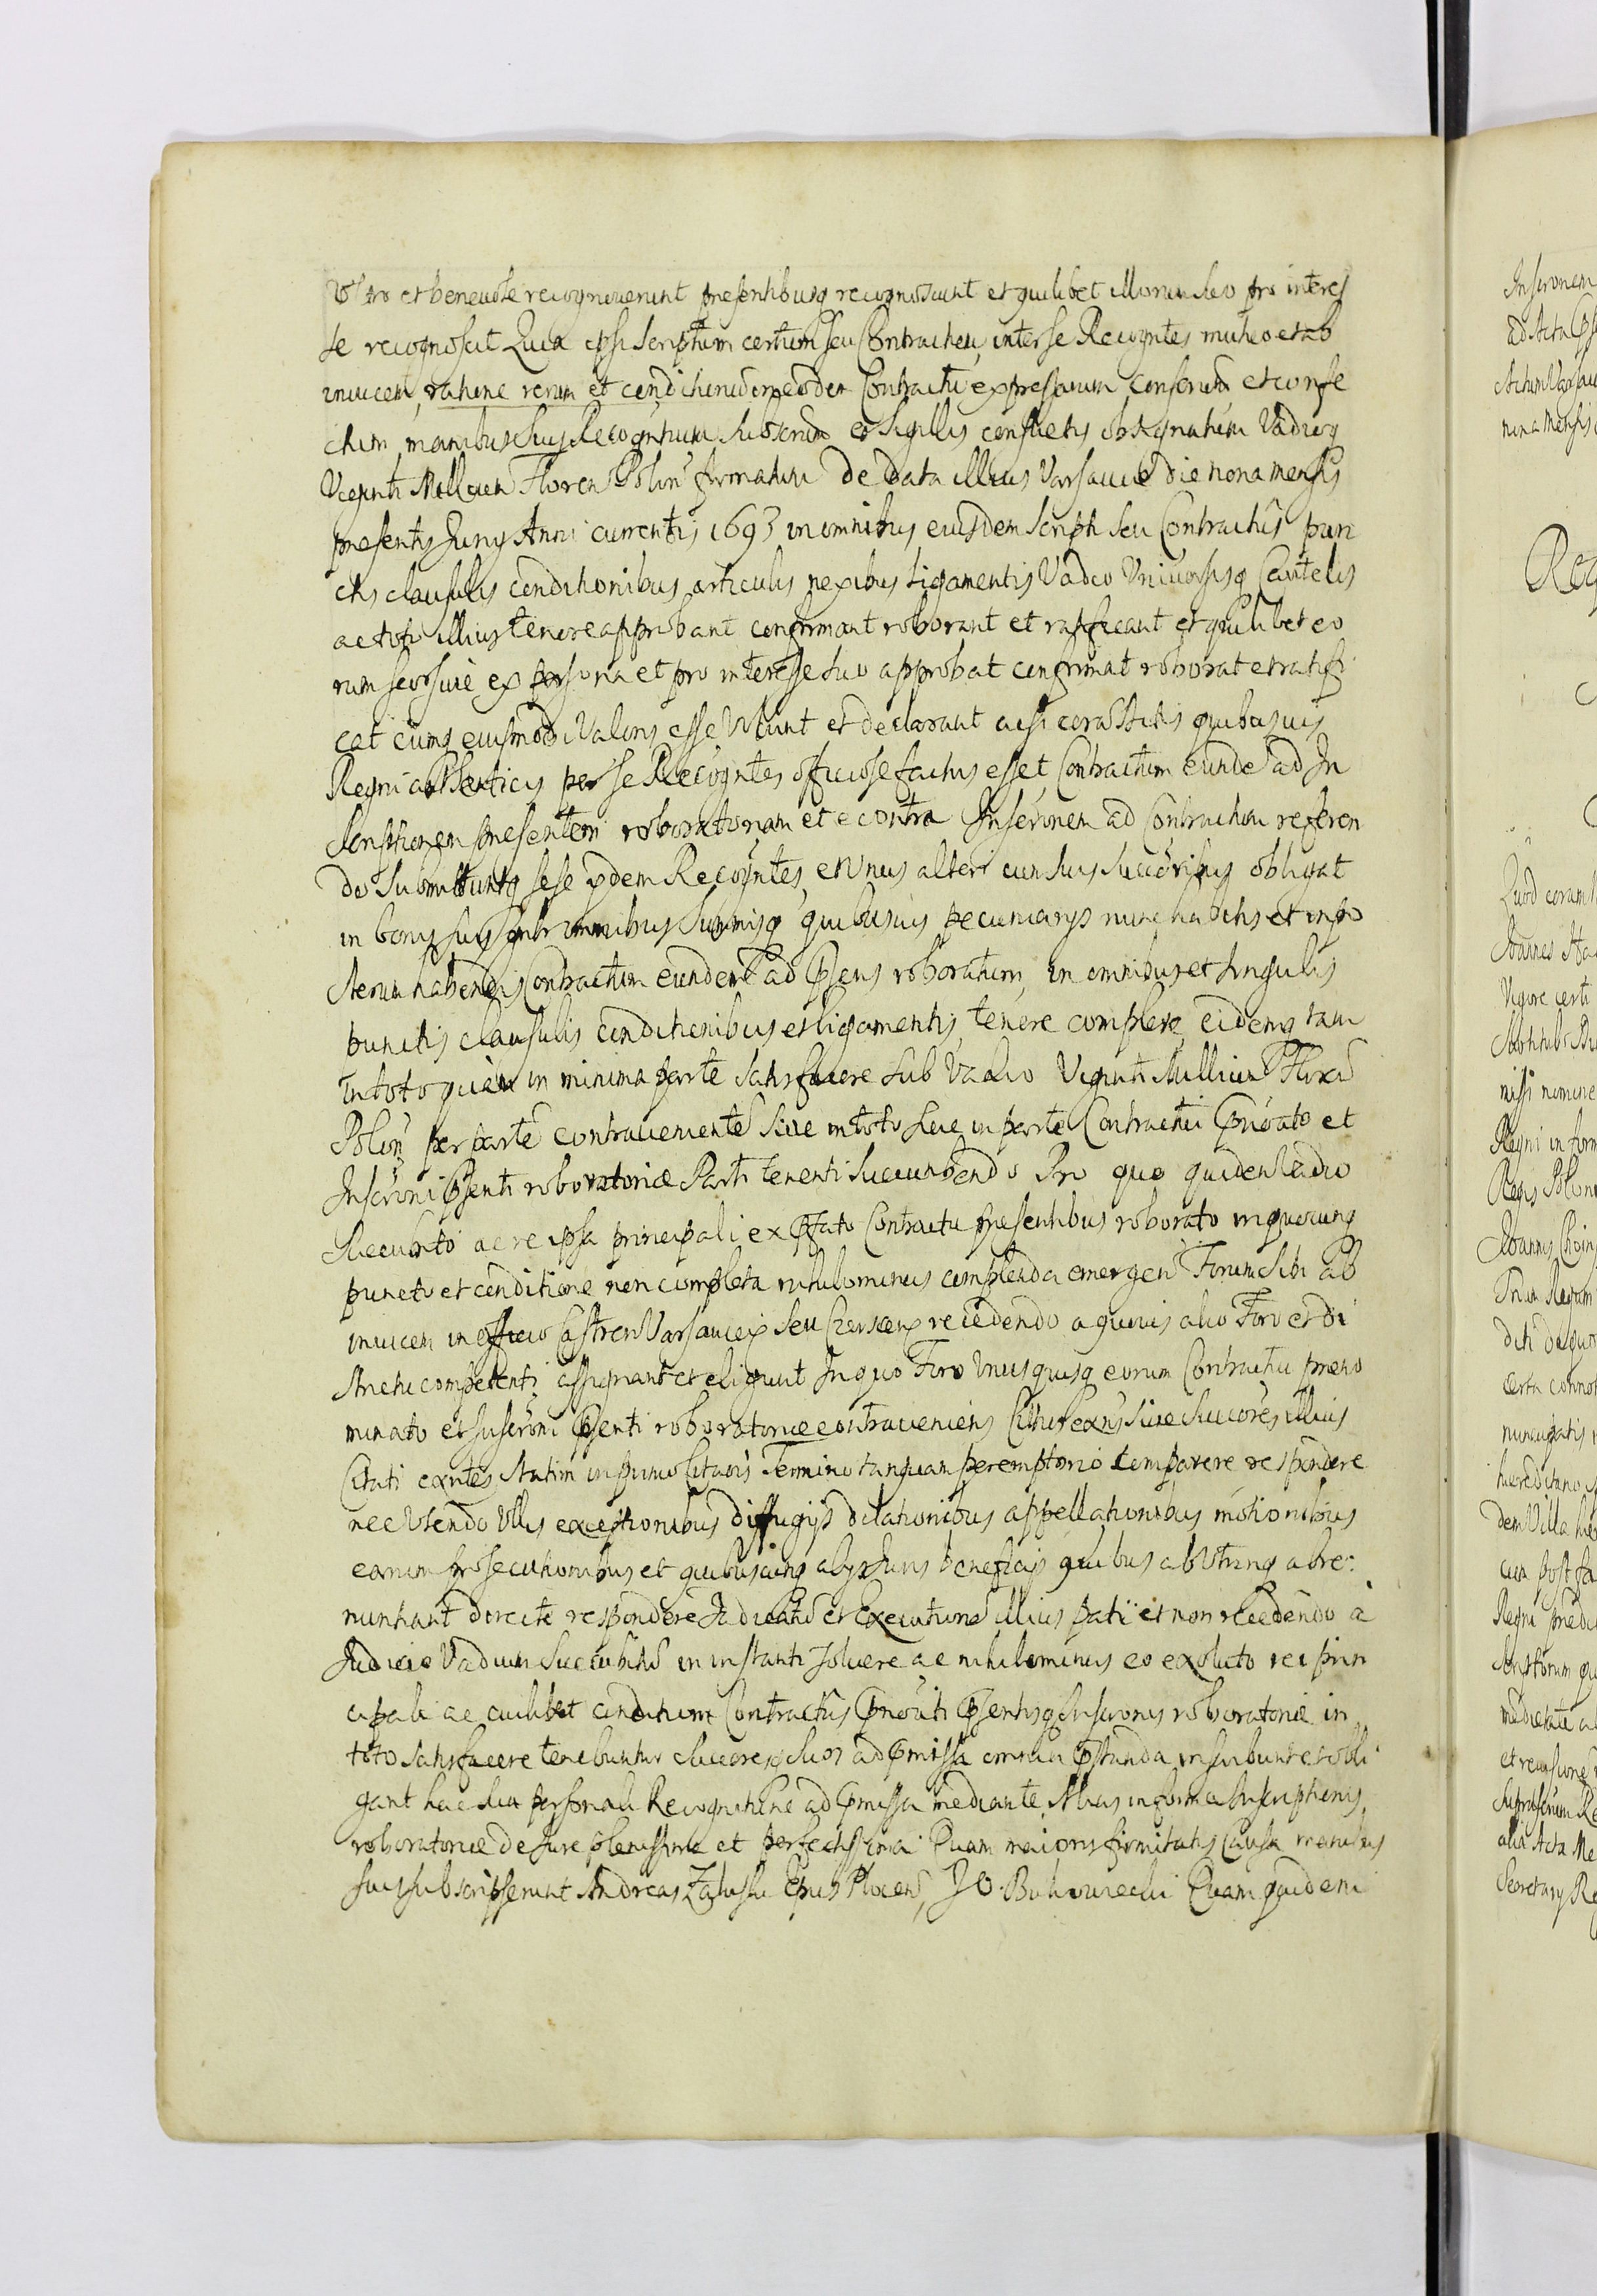 et benevole recognoverunt presentibusq recognoscunt et quilibet illorum suo pro interes
se recognoscit Quia ipsi Scriptum certum seu Contractum, inter se Recogntes mutuo et ab
invicem, ratione rerum et conditionum in eodem Contractu expressarum conscrium et confe
ctum, manibus suis Recogntium subscrium et Sigillis consuetis obsignatum Vadioq
Viginti Millium Floren Polon firmatum de data illius Varsaviæ die nona mensis
presentis Juny Anni currentis 1693 in omnibus eiusdem Scripti seu Contractus pun
ctis clausulis conditionibus articulis nexibus ligamentis Vadio Universisq Cautelis
ac toto illius tenore approbant confirmant roborant et ratificant et quilibet eo
rum seorsive ex persona et pro interesse suo approbat confirmat roborat et ratifi
cat eumq eiusmodi Valoris esse Volunt et declarant acsi coram Actis quibusvis
Regni authenticis per se Recogntes officiose factus esset, Contractum eunde ad In
scriptionem presentem roboratoriam et e contra Inscronem ad Contractum referen
do Submittuntq sese ydem Recogntes, et Unus alteri cum suis Succoribus obligat
in bonis suis omnibus Summisq quibusvis pecuniarys nunc habitis et in po
sterum habendis Contractum eundem ad Psens roboratum, in omnibus et singulis
punctis clausulis conditionibus et ligamentis, tenere complere, eidemq tam
in toto quam in minima parte satisfacere sub Vadio Viginti Millium Floren
Polon per parte contraveniente sive in toto sive in parte Contractui Pnoato et
Inscroni Psenti roboratoriæ Parti tenenti succumbendo Pro quo quidem Vadio
succubito ac re ipsa principali ex Pfato Contractu presentibus roborato in quocunq
puncto et conditione non completa nihilominus complenda emergen Forum Sibi ab
invicem in officio Castren Varsavien seu Cernen recedendo a quovis alio Foro et di
strictu competenti assignant et eligunt In quo Foro Unusquisq eorum Contractui præno
minato et Inscroni Psenti roboratoriæ contraveniens Citus exns sive Succores illius
Citati exntes, Statim in primo Citaois Termino tanquam peremptorio comparere respondere
nec Utendo Ullis exceptionibus diffugijs dilationibus appellationibus motionibus
earum prosecutionibus et quibuscunq alys Juris beneficijs quibus ab Utrinq abre:
nuntiant directe respondere Judicatum et Executione illius pati et non recedendo à
Judicio Vadium succubitum in instanti solvere ac nihilominus eo exoluto rei prin
cipali ac cuilibet conditioni Contractus Pnoati Psentisq Inscronis roboratoriæ in
toto satisfacere tenebuntur Succores suos ad Pmissa omnia Pstanda inscribunt et obli
gant hac sua personali Recognitione ad Pmissa mediante Actus in forma Inscriptionis
roboratoriæ de Jure plenissima et perfectissima. Quam maioris firmitatis Causa manibus
suis subscripserunt Andreas Zaluski Epus Plocens, Quam quidem
Inscronem
ad Acta Ps
nona mensis
Reg
Quod coram
Joannes
Vigore certi
nissi nomine
Regni in for
Regis Poloni
Joannis Choin
diti de quo
certa
nuncupatis
hæreditario
dem Villa
cia post
Regni
Scriptorum
medietate
et recursione
alia Acta Me
Secretary Re